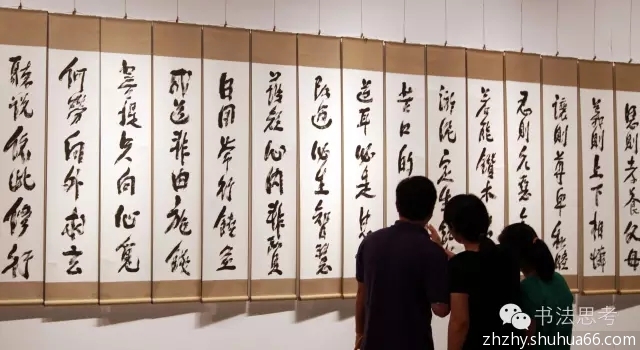 恩則孝養父母
義則上下相憐
讓則尊卑和睦
忍則众惡
若能鑽木
淤泥定生
苦口的
逆耳必是忠
改過必生智慧
護短心内非賢
日用常行饒益
成道非由施錢
菩提只向心覓
何勞向外求玄
聽說依此修行
书法思考
zhzhy.shuhua66.com